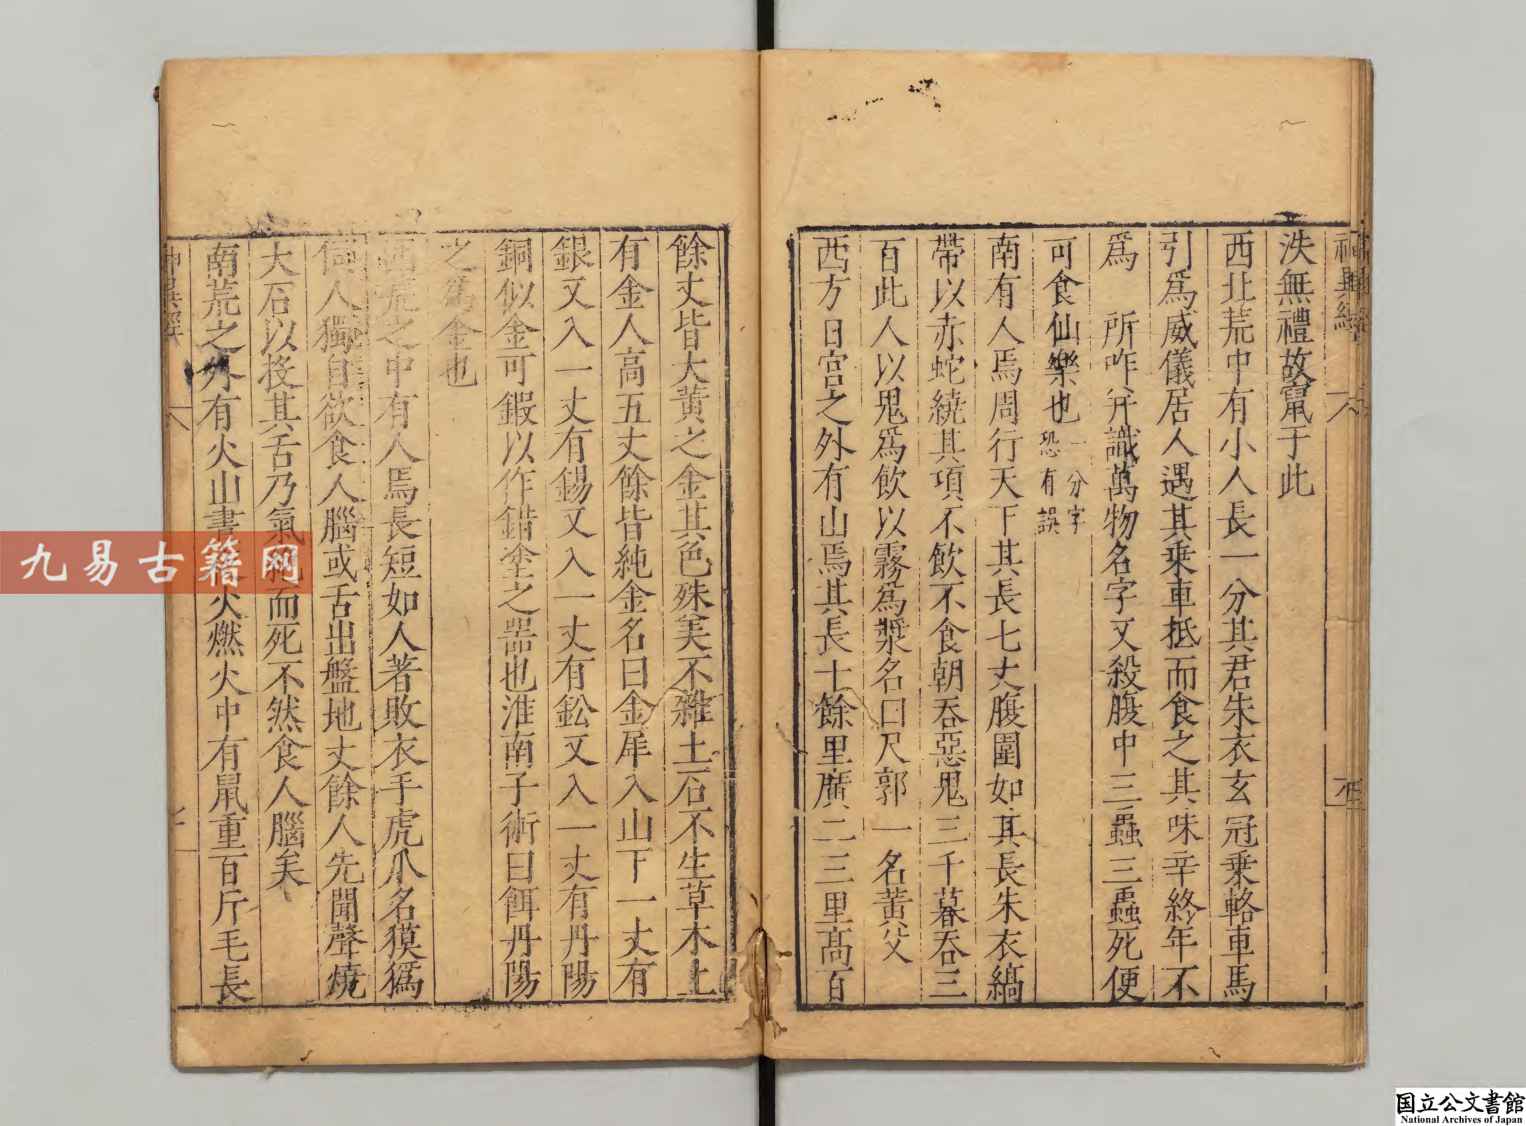 神異經
泆無禮故竄于此
西北荒中有小人長一分其君朱衣玄冠乗輅車馬
引爲威儀居人遇其乗車抵而食之其味辛終年不
爲 所咋并識萬物名字又殺腹中三蟲三蟲死便
可食仙樂也
一分字
恐有誤
南有人焉周行天下其長七丈腹圍如其長朱衣縞
帶以赤蛇繞其項不飲不食朝吞惡鬼三千暮吞三
百此人以鬼爲飲以霧爲漿名曰尺郭一名黄父
西方日宫之外有山焉其長十餘里廣二三里髙百
餘丈皆大黄之金其色殊美不雜土石不生草木上
有金人高五丈餘皆純金名曰金犀入山下一丈有
銀又入一丈有錫又入一丈有鈆又入一丈有丹陽
銅似金可鍜以作錯塗之噐也淮南子術曰餌丹陽
之爲金也
西荒之中有人焉長短如人著敗衣手虎爪名獏㺔
伺人獨自欲食人腦或舌出盤地丈餘人先聞聲燒
大石以投其舌乃氣絶而死不然食人腦矣
南荒之外有火山晝 火燃火中有鼠重百斤毛長
神異經
九易古籍网
国立公文書館
National Archives of Japan